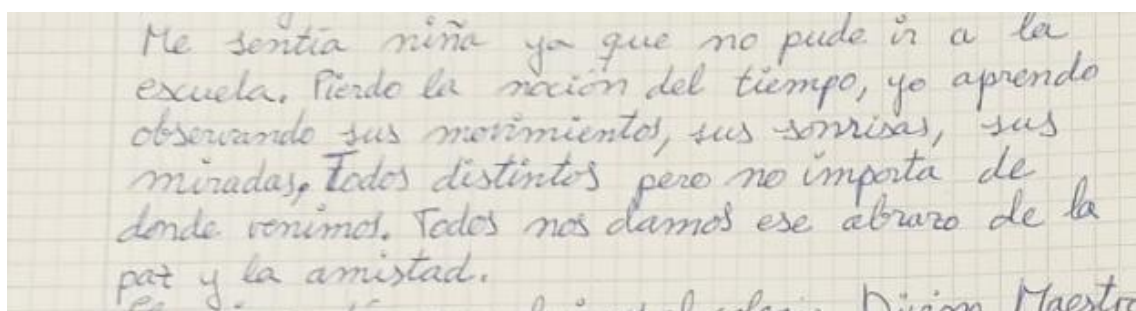 Me sentía niña ya que no pude ir a la
escuela. Pierdo la noción del tiempo, yo aprendo
observando sus movimientos, sus sonrisas, sus
miradas. Todos distintos pero no importa de
donde venimos. Todos nos damos ese abrazo de la
paz y la amistad.
Maestro